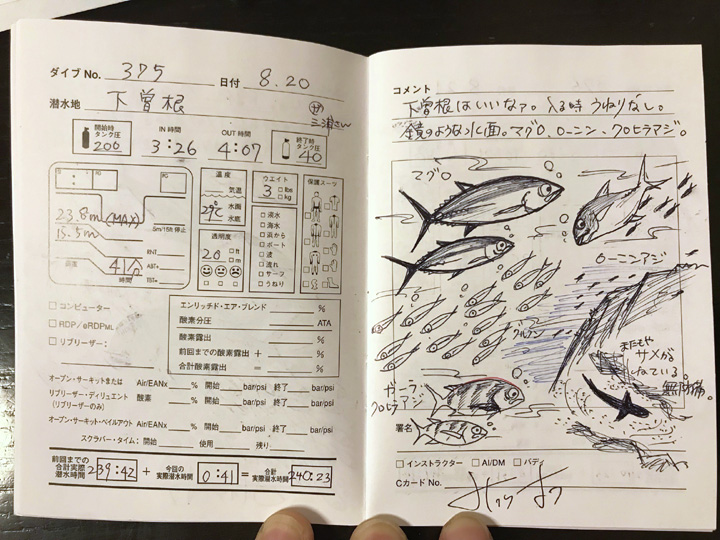 ダイブ No. 375 日付 8.20
潜水地 下曽根
三浦さん
開始時タンク圧 200
IN 時間 3:26
OUT 時間 4:07
終了時タンク圧 40
23.8m (MAX)
15.5m
5m/15ft 停止
RNT
ABT+
TBT=
41分
時間
温度
気温
29℃ 水面
水底
透明度
20 ft m
ウエイト
3 lbs kg
淡水
海水
浜から
ボート
波
流れ
サーフ
うねり
保護スーツ
コンピューター
RDP/eRDPML
リブリーザー:
エンリッチド・エア・ブレンド %
酸素分圧 ATA
酸素露出 %
前回までの酸素露出 + %
合計酸素露出 = %
オープン・サーキットまたは Air/EANx % 開始 bar/psi 終了 bar/psi
リブリーザー・ディリュエント 酸素 % 開始 bar/psi 終了 bar/psi
(リブリーザーのみ)
オープン・サーキット・ベイルアウト Air/EANx % 開始 bar/psi 終了 bar/psi
スクラバー・タイム: 開始 使用 残り
前回までの合計実際潜水時間 239:42 + 今回の実際潜水時間 0:41 = 合計実際潜水時間 240:23
コメント
下曽根はいいなァ。入る時うねりなし。
鏡のような水面。マグロ、ローニン、クロヒラアジ。
マグロ
ローニンアジ
グルクン
またもや
サメが
ねている。
無防備。
クロヒラアジ
署名
インストラクター AI/DM バディ
Cカード No.